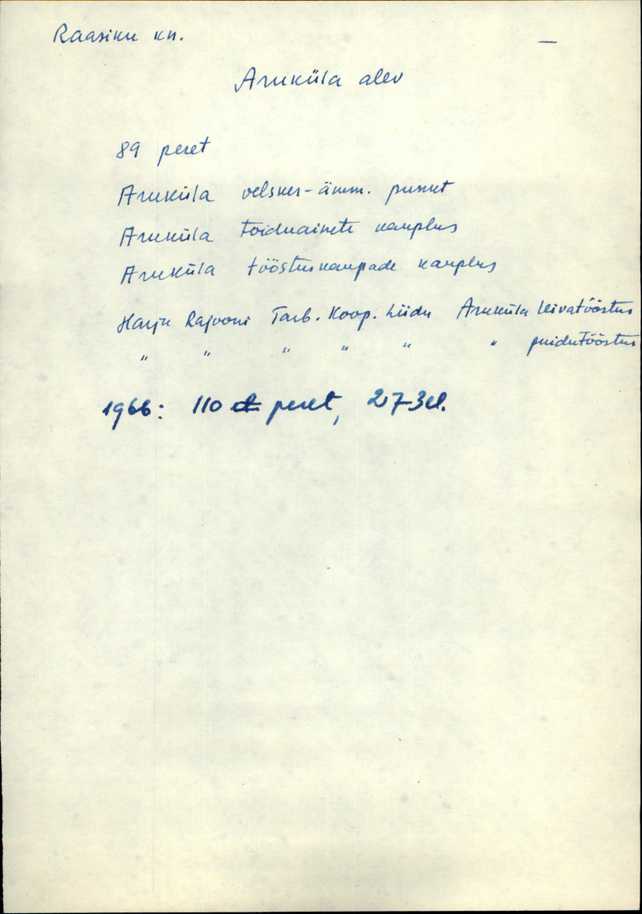 Raasiku kn. —
Aruküla alev
89 peret
Aruküla velsker-ämm. punkt
Aruküla toiduainete kauplus
Aruküla tööstuskaupade kauplus
Harju Rajooni Tarb. Koop. Liidu Aruküla leivatööstus
" " " " " " puidutööstus
1966: 110 peret, 273 el.